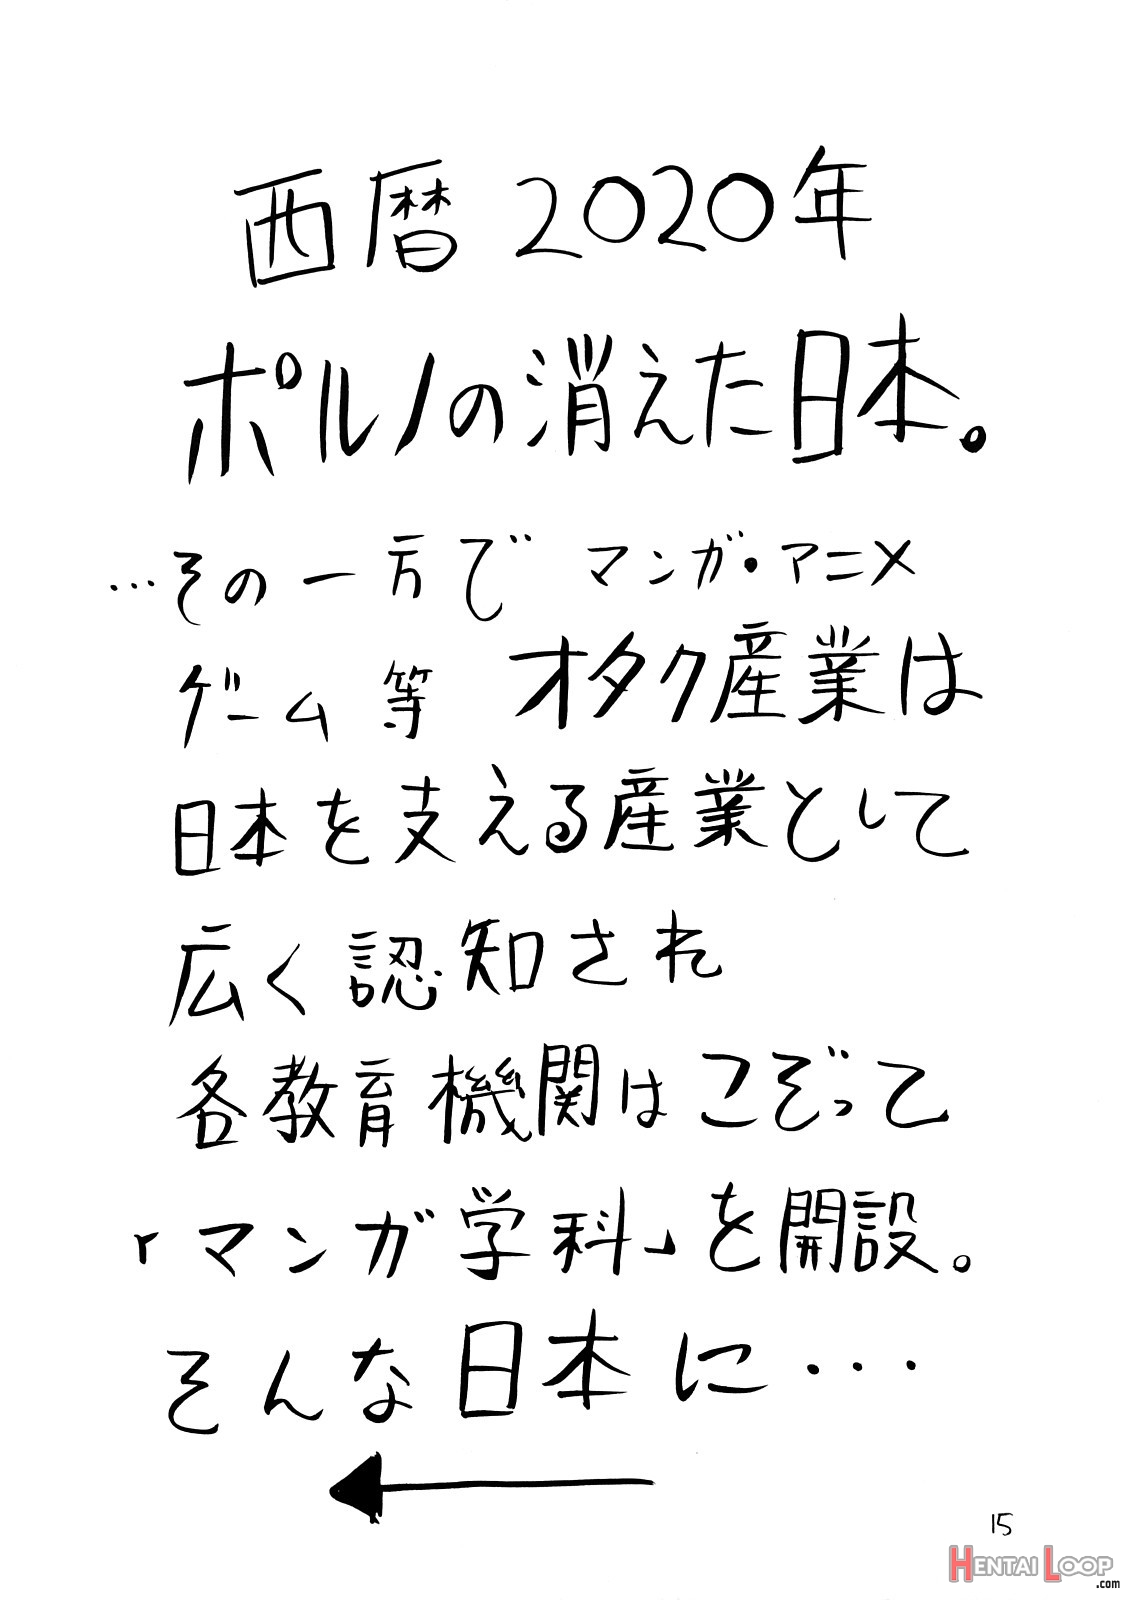 西暦2020年
ポルノの消えた日本。
…その一方で マンガ・アニメ
ゲーム等 オタク産業は
日本を支える産業として
広く認知され
各教育機関はこぞって
「マンガ学科」を開設。
そんな日本に・・・
15
HENTAI LOOP
.com